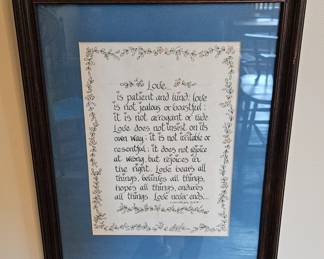 Love...
is patient and kind: love
is not jealous or boastful:
it is not arrogant or rude
Love does not insist on its
own way: it is not irritable or
resentful: it does not rejoice
at wrong, but rejoices in
the right. Love bears all
things, believes all things,
hopes all things, endures
all things. Love never ends...